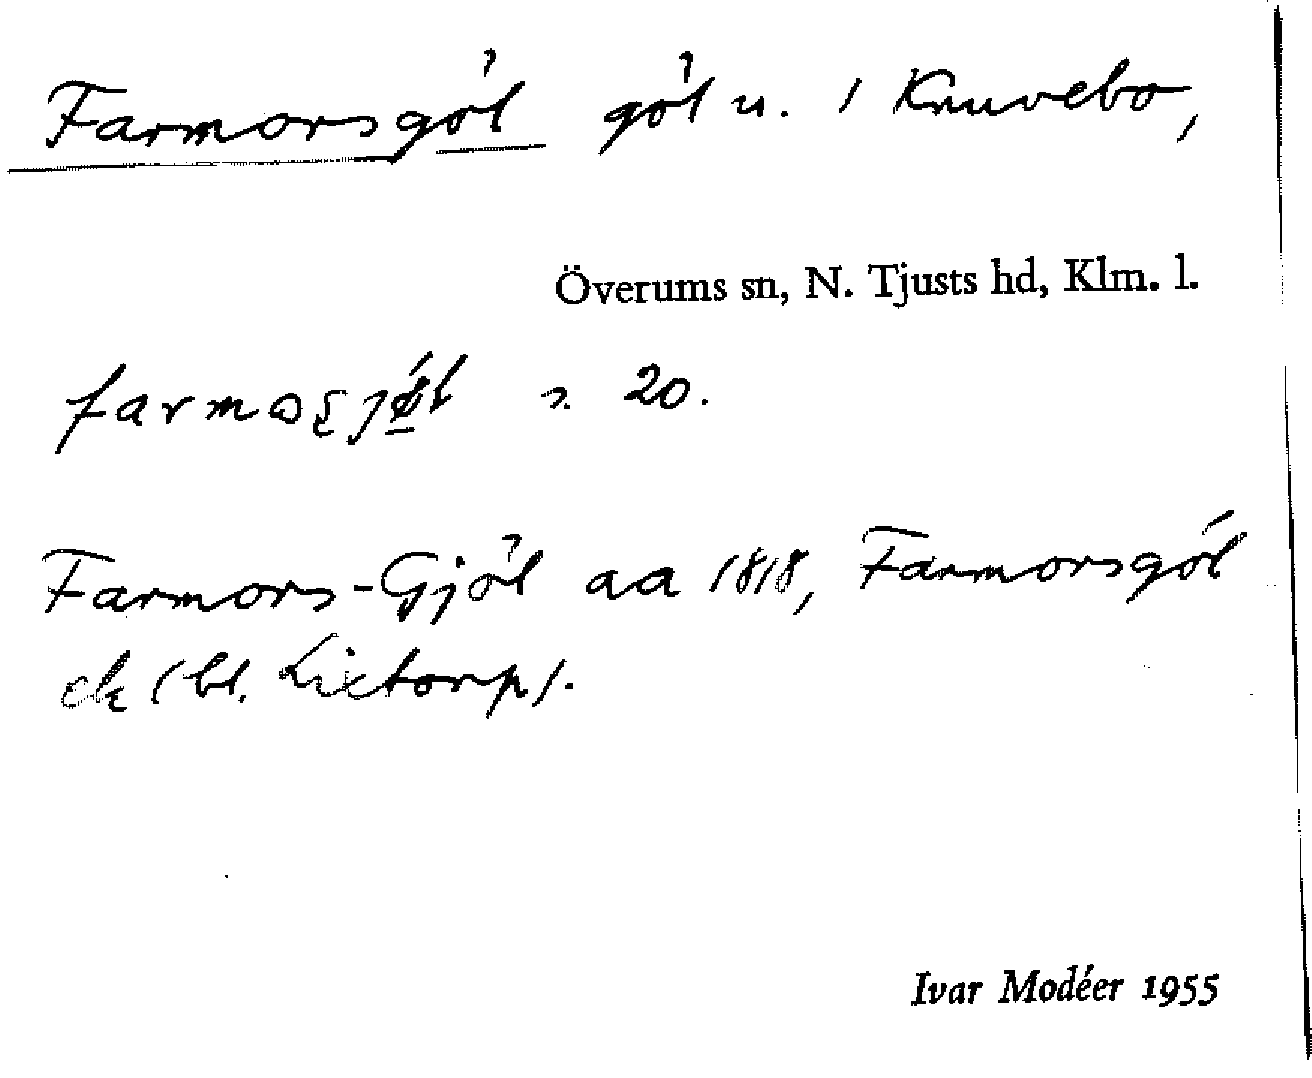 Farmorsgöl göl u. / Knuvebo,
Överums sn, N. Tjusts hd, Klm. l.
20.
Farmors-Gjöl aa 1818, Farmorsgöl
ek (bl. Lixtorp).
Ivar Modéer 1955